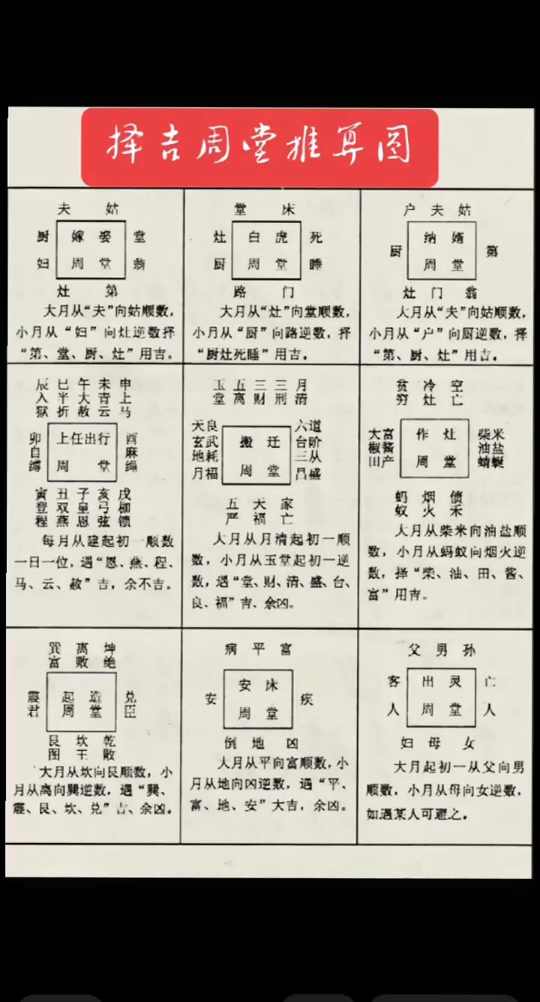 择吉周堂推算图
夫 姑
厨 嫁娶 堂
妇 周堂 翁
灶 第
大月从“夫”向姑顺数，
小月从“妇”向灶逆数择
“第、堂、厨、灶”用吉。
堂 床
灶 白虎 死
厨 周堂 睡
路 门
大月从“灶”向堂顺数，
小月从“厨”向路逆数，择
“厨灶死睡”用吉。
户 夫 姑
厨 纳婿 第
周堂
灶 门 翁
大月从“夫”向姑顺数，
小月从“户”向厨逆数，择
“第、厨、灶”用吉。
辰 巳 午 未 申
入 半 大 青 上
狱 折 赦 云 马
卯 上任出行 酉
自 麻
缚 周堂 绳
寅 丑 子 亥 戌
登 双 皇 弓 枷
程 燕 恩 弦 锁
每月从建起初一顺数
一日一位，遇“恩、燕、程、
马、云、赦”吉，余不吉。
玉 五 三 三 月
堂 离 财 刑 清
天良 六道
玄武 搬迁 台阶
地耗 三从
月福 周堂 昌盛
五 天 家
严 福 亡
大月从月清起初一顺
数，小月从玉堂起初一逆
数，遇“堂、财、清、盛、台、
良、福”吉、余凶。
贫 冷 空
穷 灶 亡
大富 作灶 柴米
椒酱 油盐
田产 周堂 蜻蜓
蚂 烟 债
蚁 火 禾
大月从柴米向油盐顺
数，小月从蚂蚁向烟火逆
数，择“柴、油、田、酱、
富”用吉。
巽 离 坤
富 败 绝
震 起造 兑
君 周堂 臣
艮 坎 乾
图 王 败
大月从坎向艮顺数，小
月从离向巽逆数，遇“巽、
震、艮、坎、兑”吉、余凶。
病 平 富
安 安床 疾
周堂
倒 地 凶
大月从平向富顺数，小
月从地向凶逆数，遇“平、
富、地、安”大吉，余凶。
父 男 孙
客 出灵 亡
人 周堂 人
妇 母 女
大月起初一从父向男
顺数，小月从母向女逆数，
如遇某人可避之，